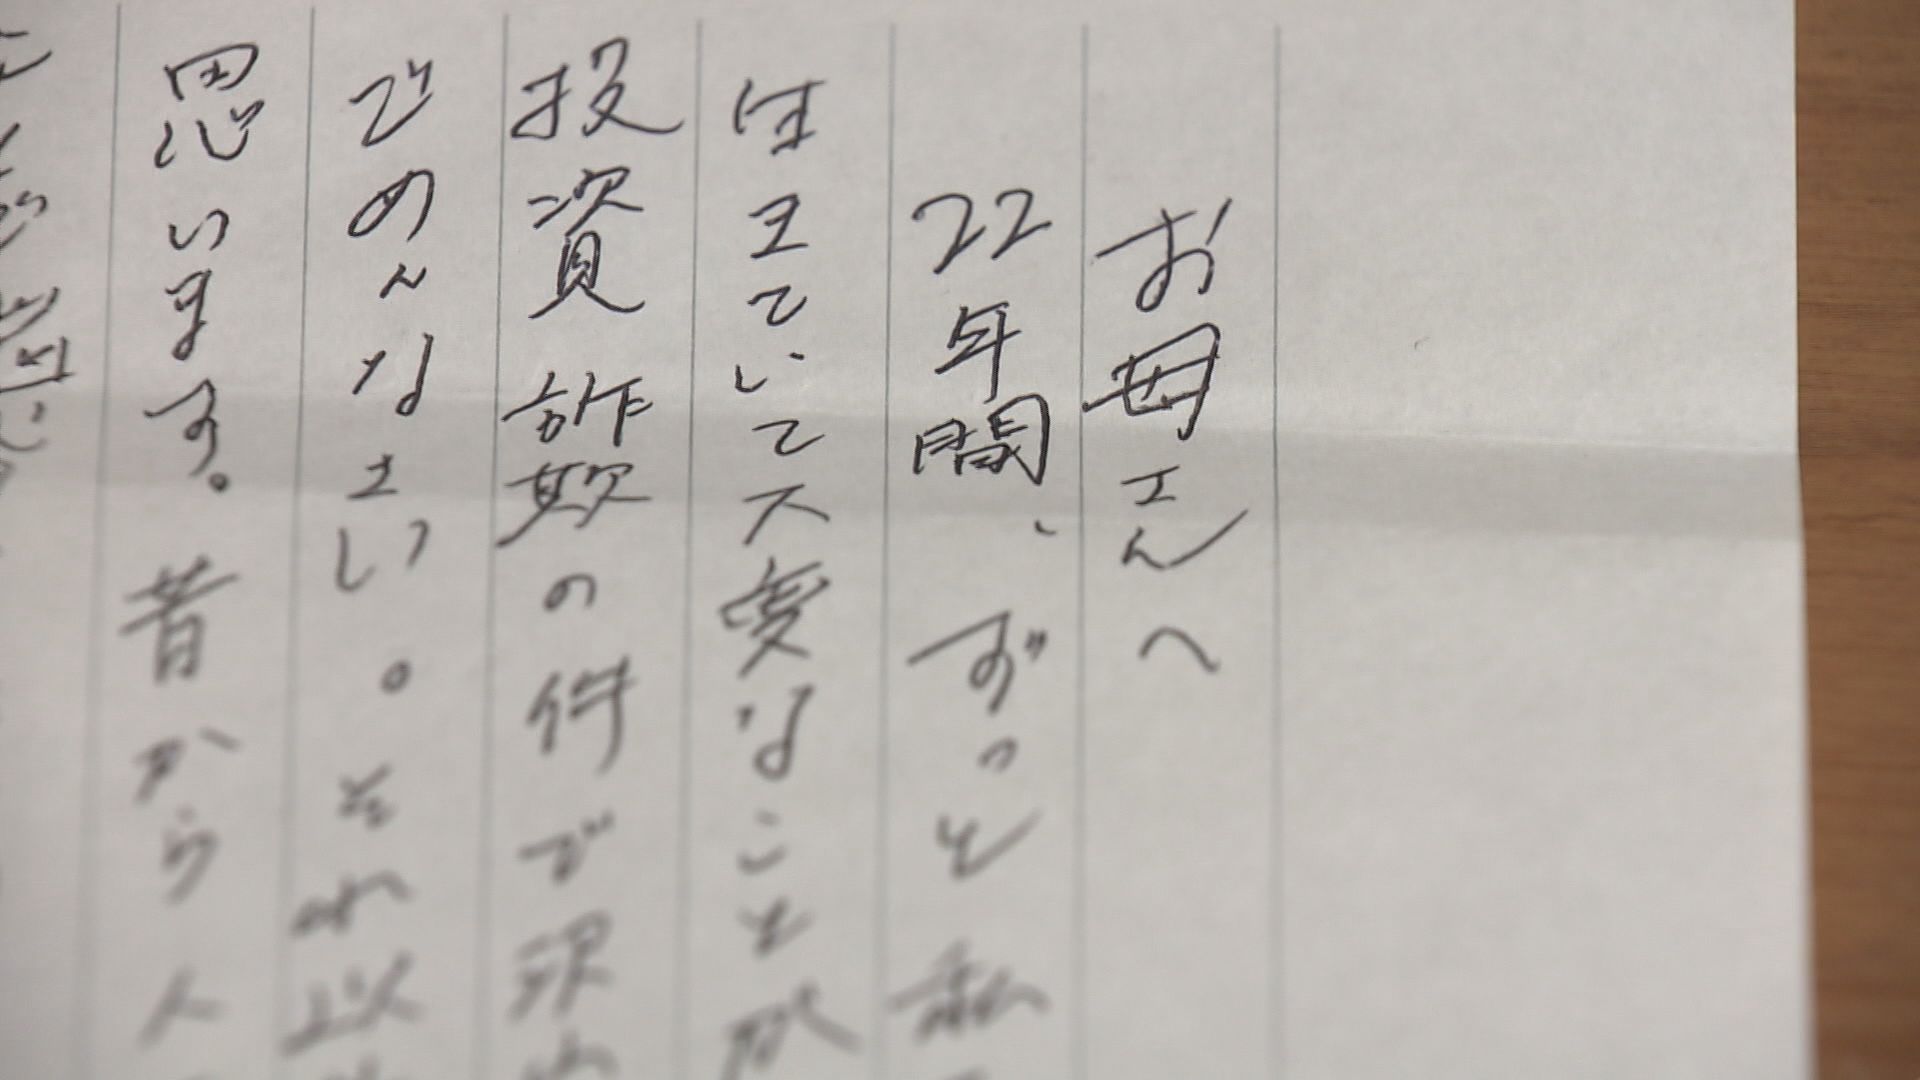 お母さんへ
22年間、ずっと私
生きていて大変なこと
投資詐欺の件で
ごめんなさい。それ以
思います。昔から人